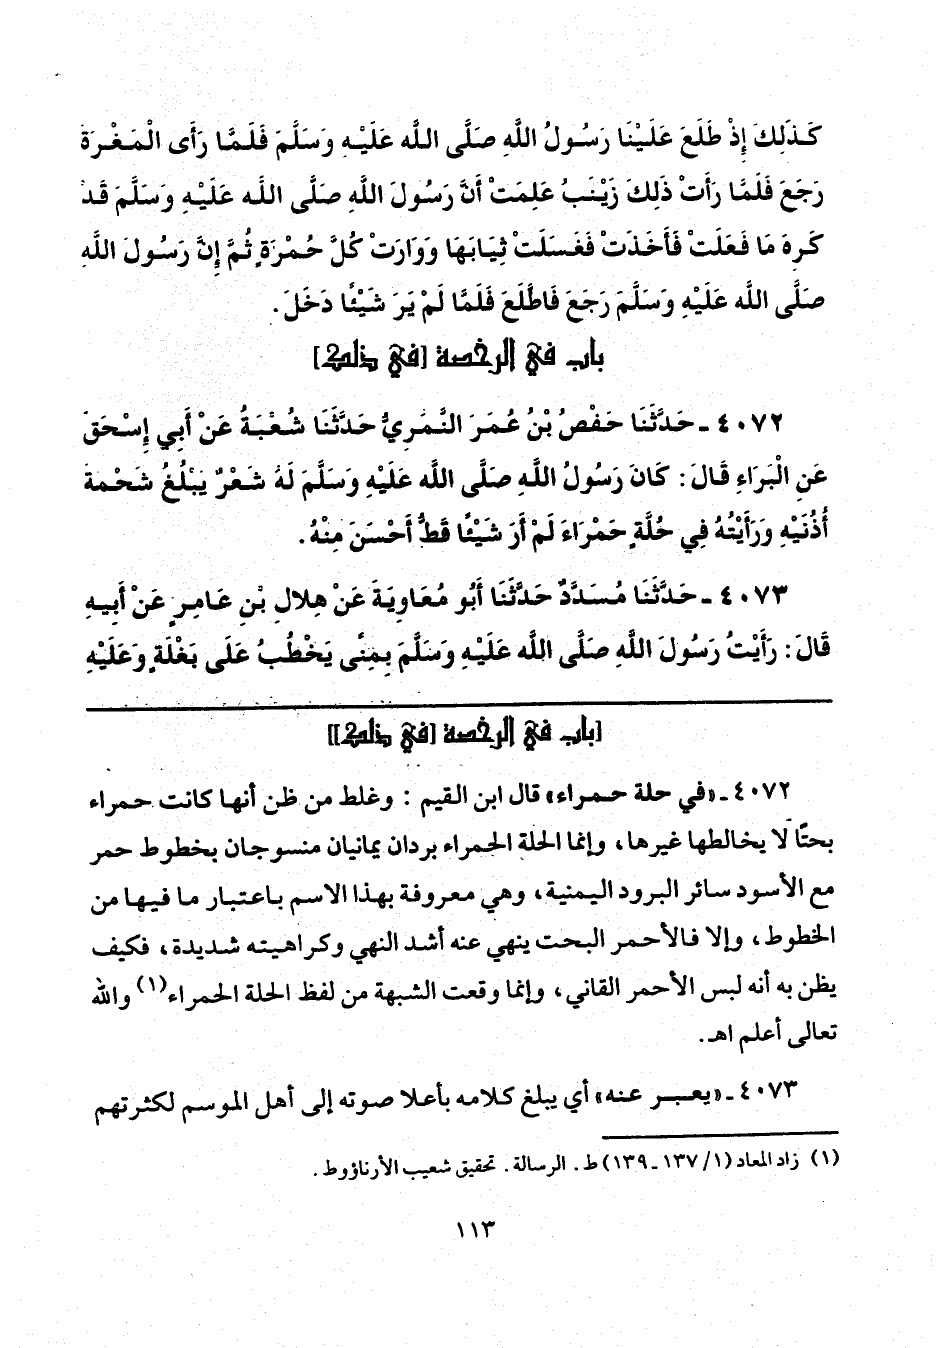 كَـذَلِكَ إِذْ طَلَعَ عَلَـيْنَا رَسُـولُ اللَّهِ صَلَّى اللَّه عَلَيْـهِ وَسَلَّمَ فَلَمَّـا رَأَى الْمَـغْـرَةَ
رَجَعَ فَلَمَّا رَأَتْ ذَلِكَ زَيْنَبُ عَلِمَتْ أَنَّ رَسُولَ اللَّهِ صَلَّى اللَّه عَلَيْهِ وَسَلَّمَ قَدْ
كَرِهَ مَا فَعَلَتْ فَأَخَذَتْ فَغَسَلَتْ ثِيَابَهَا وَوَارَتْ كُلَّ حُمْرَةٍ ثُمَّ إِنَّ رَسُولَ اللَّهِ
صَلَّى اللَّه عَلَيْهِ وَسَلَّمَ رَجَعَ فَاطَّلَعَ فَلَمَّا لَمْ يَرَ شَيْئًا دَخَلَ.
باب في الرخصة [في ذلك]
٤٠٧٢ ـ حَدَّثَنَا حَفْصُ بْنُ عُمَرَ النَّمَرِيُّ حَدَّثَنَا شُعْبَةُ عَنْ أَبِي إِسْحَقَ
عَنِ الْبَرَاءِ قَالَ: كَانَ رَسُولُ اللَّهِ صَلَّى اللَّه عَلَيْهِ وَسَلَّمَ لَهُ شَعْرٌ يَبْلُغُ شَحْمَةَ
أُذُنَيْهِ وَرَأَيْتُهُ فِي حُلَّةٍ حَمْرَاءَ لَمْ أَرَ شَيْئًا قَطُّ أَحْسَنَ مِنْهُ.
٤٠٧٣ ـ حَدَّثَنَا مُسَدَّدٌ حَدَّثَنَا أَبُو مُعَاوِيَةَ عَنْ هِلالِ بْنِ عَامِرٍ عَنْ أَبِيهِ
قَالَ: رَأَيْتُ رَسُولَ اللَّهِ صَلَّى اللَّه عَلَيْهِ وَسَلَّمَ بِمِنًى يَخْطُبُ عَلَى بَغْلَةٍ وَعَلَيْهِ
[باب في الرخصة [في ذلك]]
٤٠٧٢ ـ «في حلة حمراء» قال ابن القيم : وغلط من ظن أنها كانت حمراء
بحتًا لا يخالطها غيرها، وإنما الحلة الحمراء بردان يمانيان منسوجان بخطوط حمر
مع الأسود سائر البرود اليمنية، وهي معروفة بهذا الاسم باعتبار ما فيها من
الخطوط، وإلا فالأحمر البحت ينهي عنه أشد النهي وكراهيته شديدة، فكيف
يظن به أنه لبس الأحمر القاني، وإنما وقعت الشبهة من لفظ الحلة الحمراء(١) والله
تعالى أعلم اهـ.
٤٠٧٣ ـ «يعبر عنه» أي يبلغ كلامه بأعلا صوته إلى أهل الموسم لكثرتهم
(١) زاد المعاد (١/ ١٣٧ ـ ١٣٩) ط. الرسالة. تحقيق شعيب الأرناؤوط.
١١٣